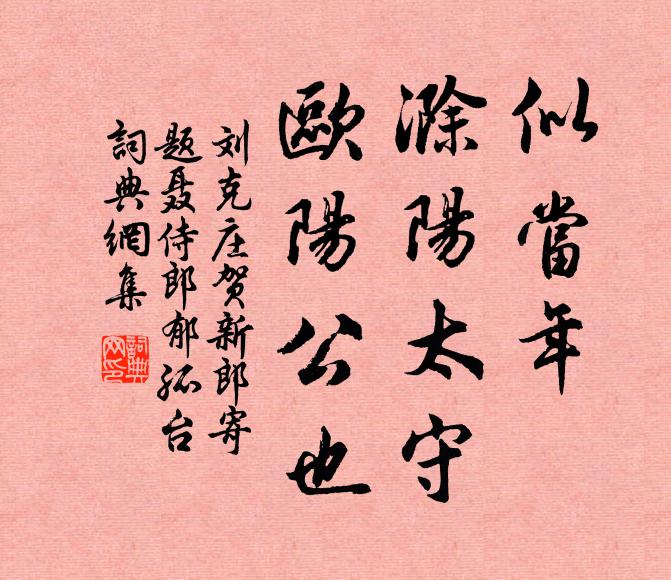 似當年
滁陽太守
歐陽公也
刘克庄贺新郎寄
题聂侍郎郁孤台
詞典網集
詞典
网印